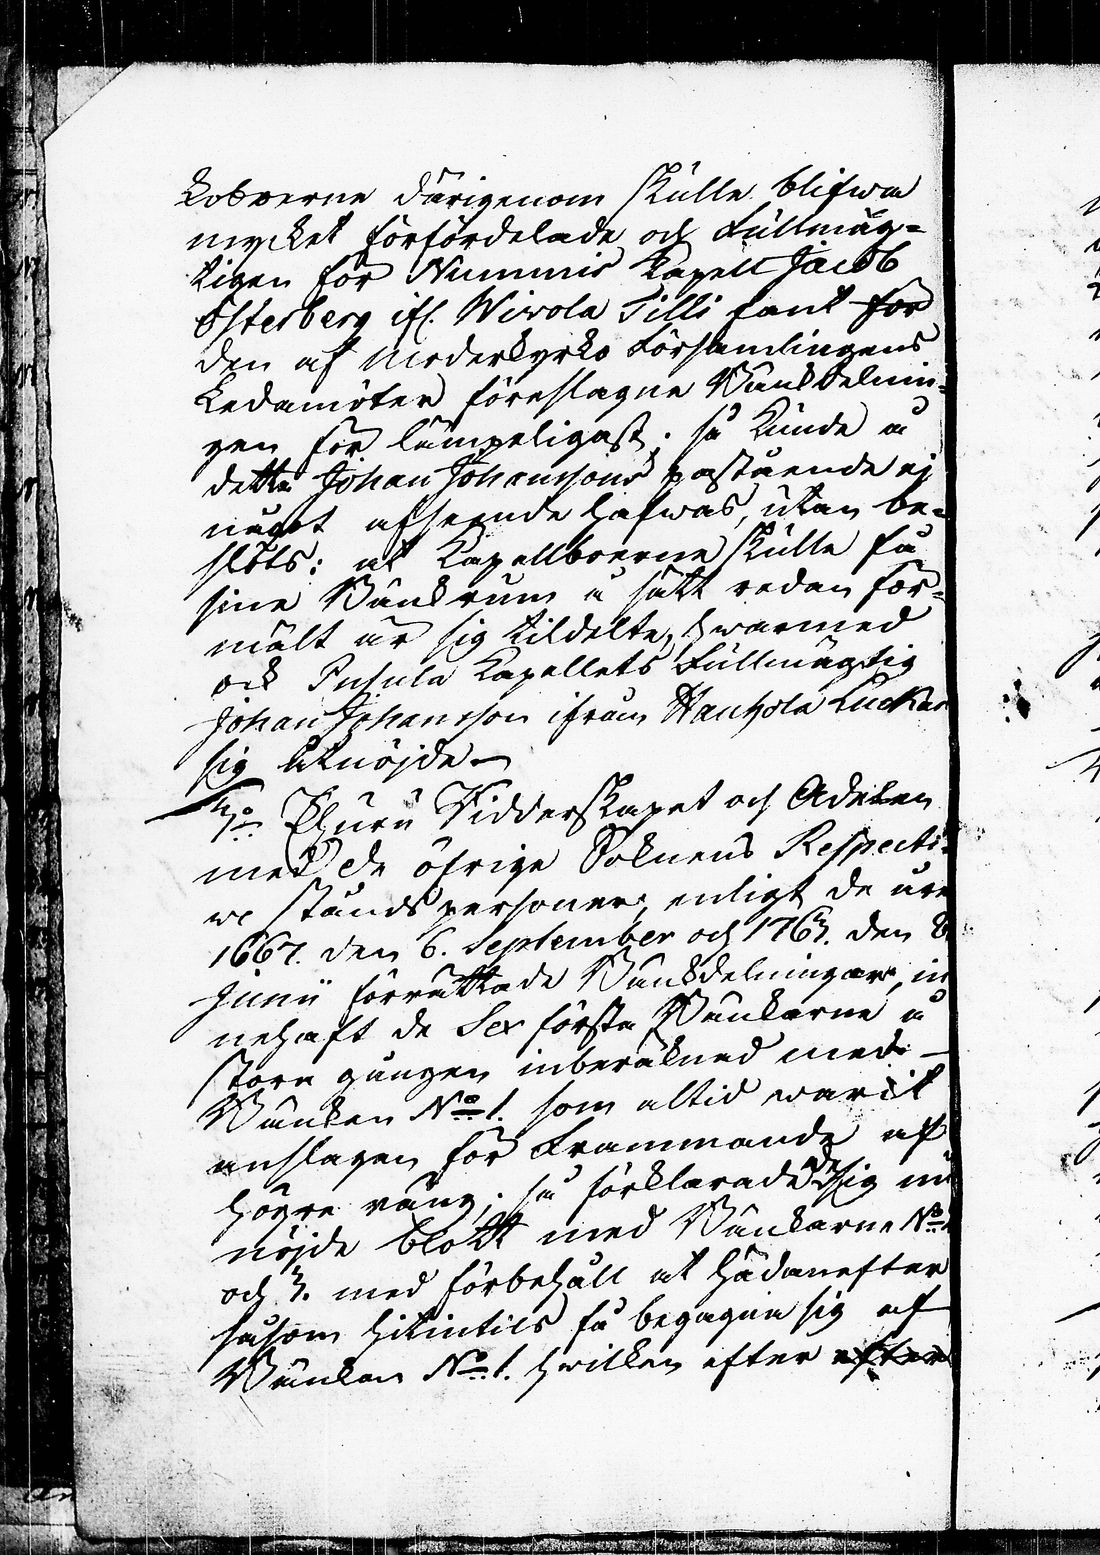 koboerne därigenom skulle blifwa
mycket förfördelade och Fullmäg-
tigen för Nummis Kapell Jacob
Österberg ifl. Wiwola Tilli fant för
den af Moderkyrko Församlingens
Ledamöter föreslagne Bänkdelnin-
gen för lämpeligast; så kunde å
detta Johan Johanssons påstående ej
något afseende hafwas, utan be-
slöts: at Kapellboerne skulle få
sine Bänkrum å sätt redan för-
mält är sig tildelte, hwarmed
ock Pusula Kapellets Fullmägtig
Johan Johansson ifrån Hauhola Luckar
sig åtnöjde.
7:o Ehuru Ridderskapet och Adelen
med de öfrige Soknens Respecti-
ve Ståndspersoner, enligt de åren
1667. den 6. September och 1763. den 8
Junii förrättade Bänkdelningar, in
nehaft de Sex första Bänkarne å
stora gången inberäknad med
Bänken No 1. som altid warit
anslagen för Främmande af
högre rang; så förklarade de sig nu
nöjde blott med Bänkarne No 2
och 3. med förbehåll at hädanefter
såsom hitintils få begagna sig af
Bänken No 1. hwilken efter efter